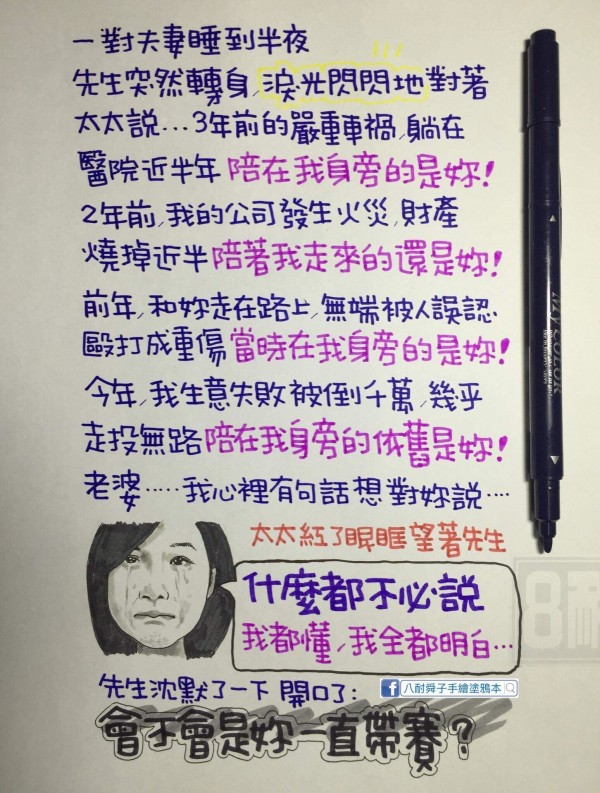 一對夫妻睡到半夜
先生突然轉身,淚光閃閃地對著
太太說…3年前的嚴重車禍,躺在
醫院近半年陪在我身旁的是妳!
2年前,我的公司發生火災,財產
燒掉近半陪著我走來的還是妳!
前年,和妳走在路上,無端被人誤認
毆打成重傷當時在我身旁的是妳!
今年,我生意失敗被倒千萬,幾乎
走投無路陪在我身旁的依舊是妳!
老婆……我心裡有句話想對妳說…
太太紅了眼眶望著先生
什麼都不必說
我都懂,我全都明白…
先生沈默了一下開口了:
八耐舜子手繪塗鴉本
會不會是妳一直帶賽?
MY COLOR